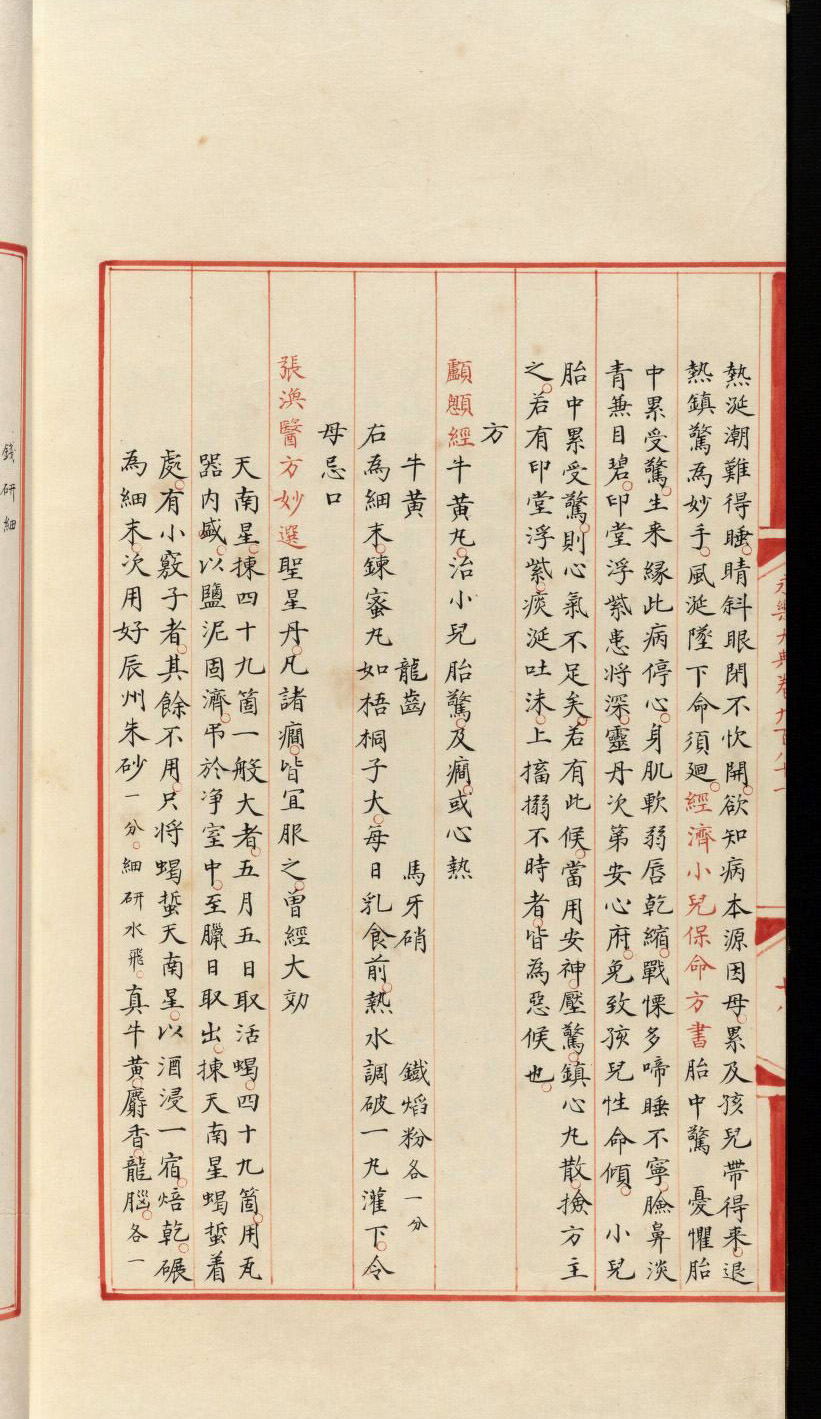 永樂大典卷九百八十一
熱涎潮難得睡。睛斜眼閉不忺開。欲知病本源因母。累及孩兒帶得來。退
熱鎮驚為妙手。風涎墜下命須廻。經濟小兒保命方書胎中驚 憂懼胎
中累受驚。生來緣此病停心。身肌軟弱唇乾縮。戰慄多啼睡不寧。臉鼻淡
青兼目碧。印堂浮紫患將深。靈丹次第安心府。免致孩兒性命傾。 小兒
胎中累受驚。則心氣不足矣。若有此候。當用安神。壓驚。鎮心丸散。撿方主
之。若有印堂浮紫。痰涎吐沫。上搐搦不時者。皆為惡候也。
方
顱顖經牛黃丸。治小兒胎驚。及癇。或心熱
牛黃 龍齒 馬牙硝 鐵熖粉各一分
右為細末。鍊蜜丸如梧桐子大。每日乳食前。熱水調破一丸灌下。令
母忌口
張渙醫方妙選聖星丹。凡諸癇。皆宜服之。曾經大効
天南星。揀四十九箇一般大者。五月五日取活蝎。四十九箇。用瓦
器內盛。以鹽泥固濟。弔於净室中。至臘日取出。揀天南星蝎蜇着
處。有小竅子者。其餘不用。只將蝎蜇天南星。以酒浸一宿。焙乾。碾
為細末。次用好辰州朱砂一分。細研水飛。真牛黃。麝香。龍腦。各一
錢研細